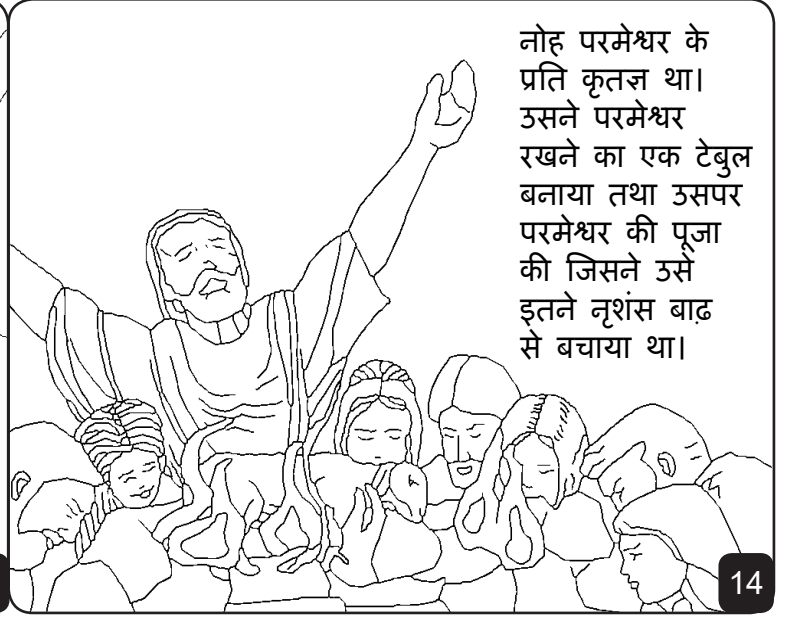 नोह परमेश्वर के
प्रति कृतज्ञ था।
उसने परमेश्वर
रखने का एक टेबुल
बनाया तथा उसपर
परमेश्वर की पूजा
की जिसने उसे
इतने नृशंस बाढ़
से बचाया था।
14